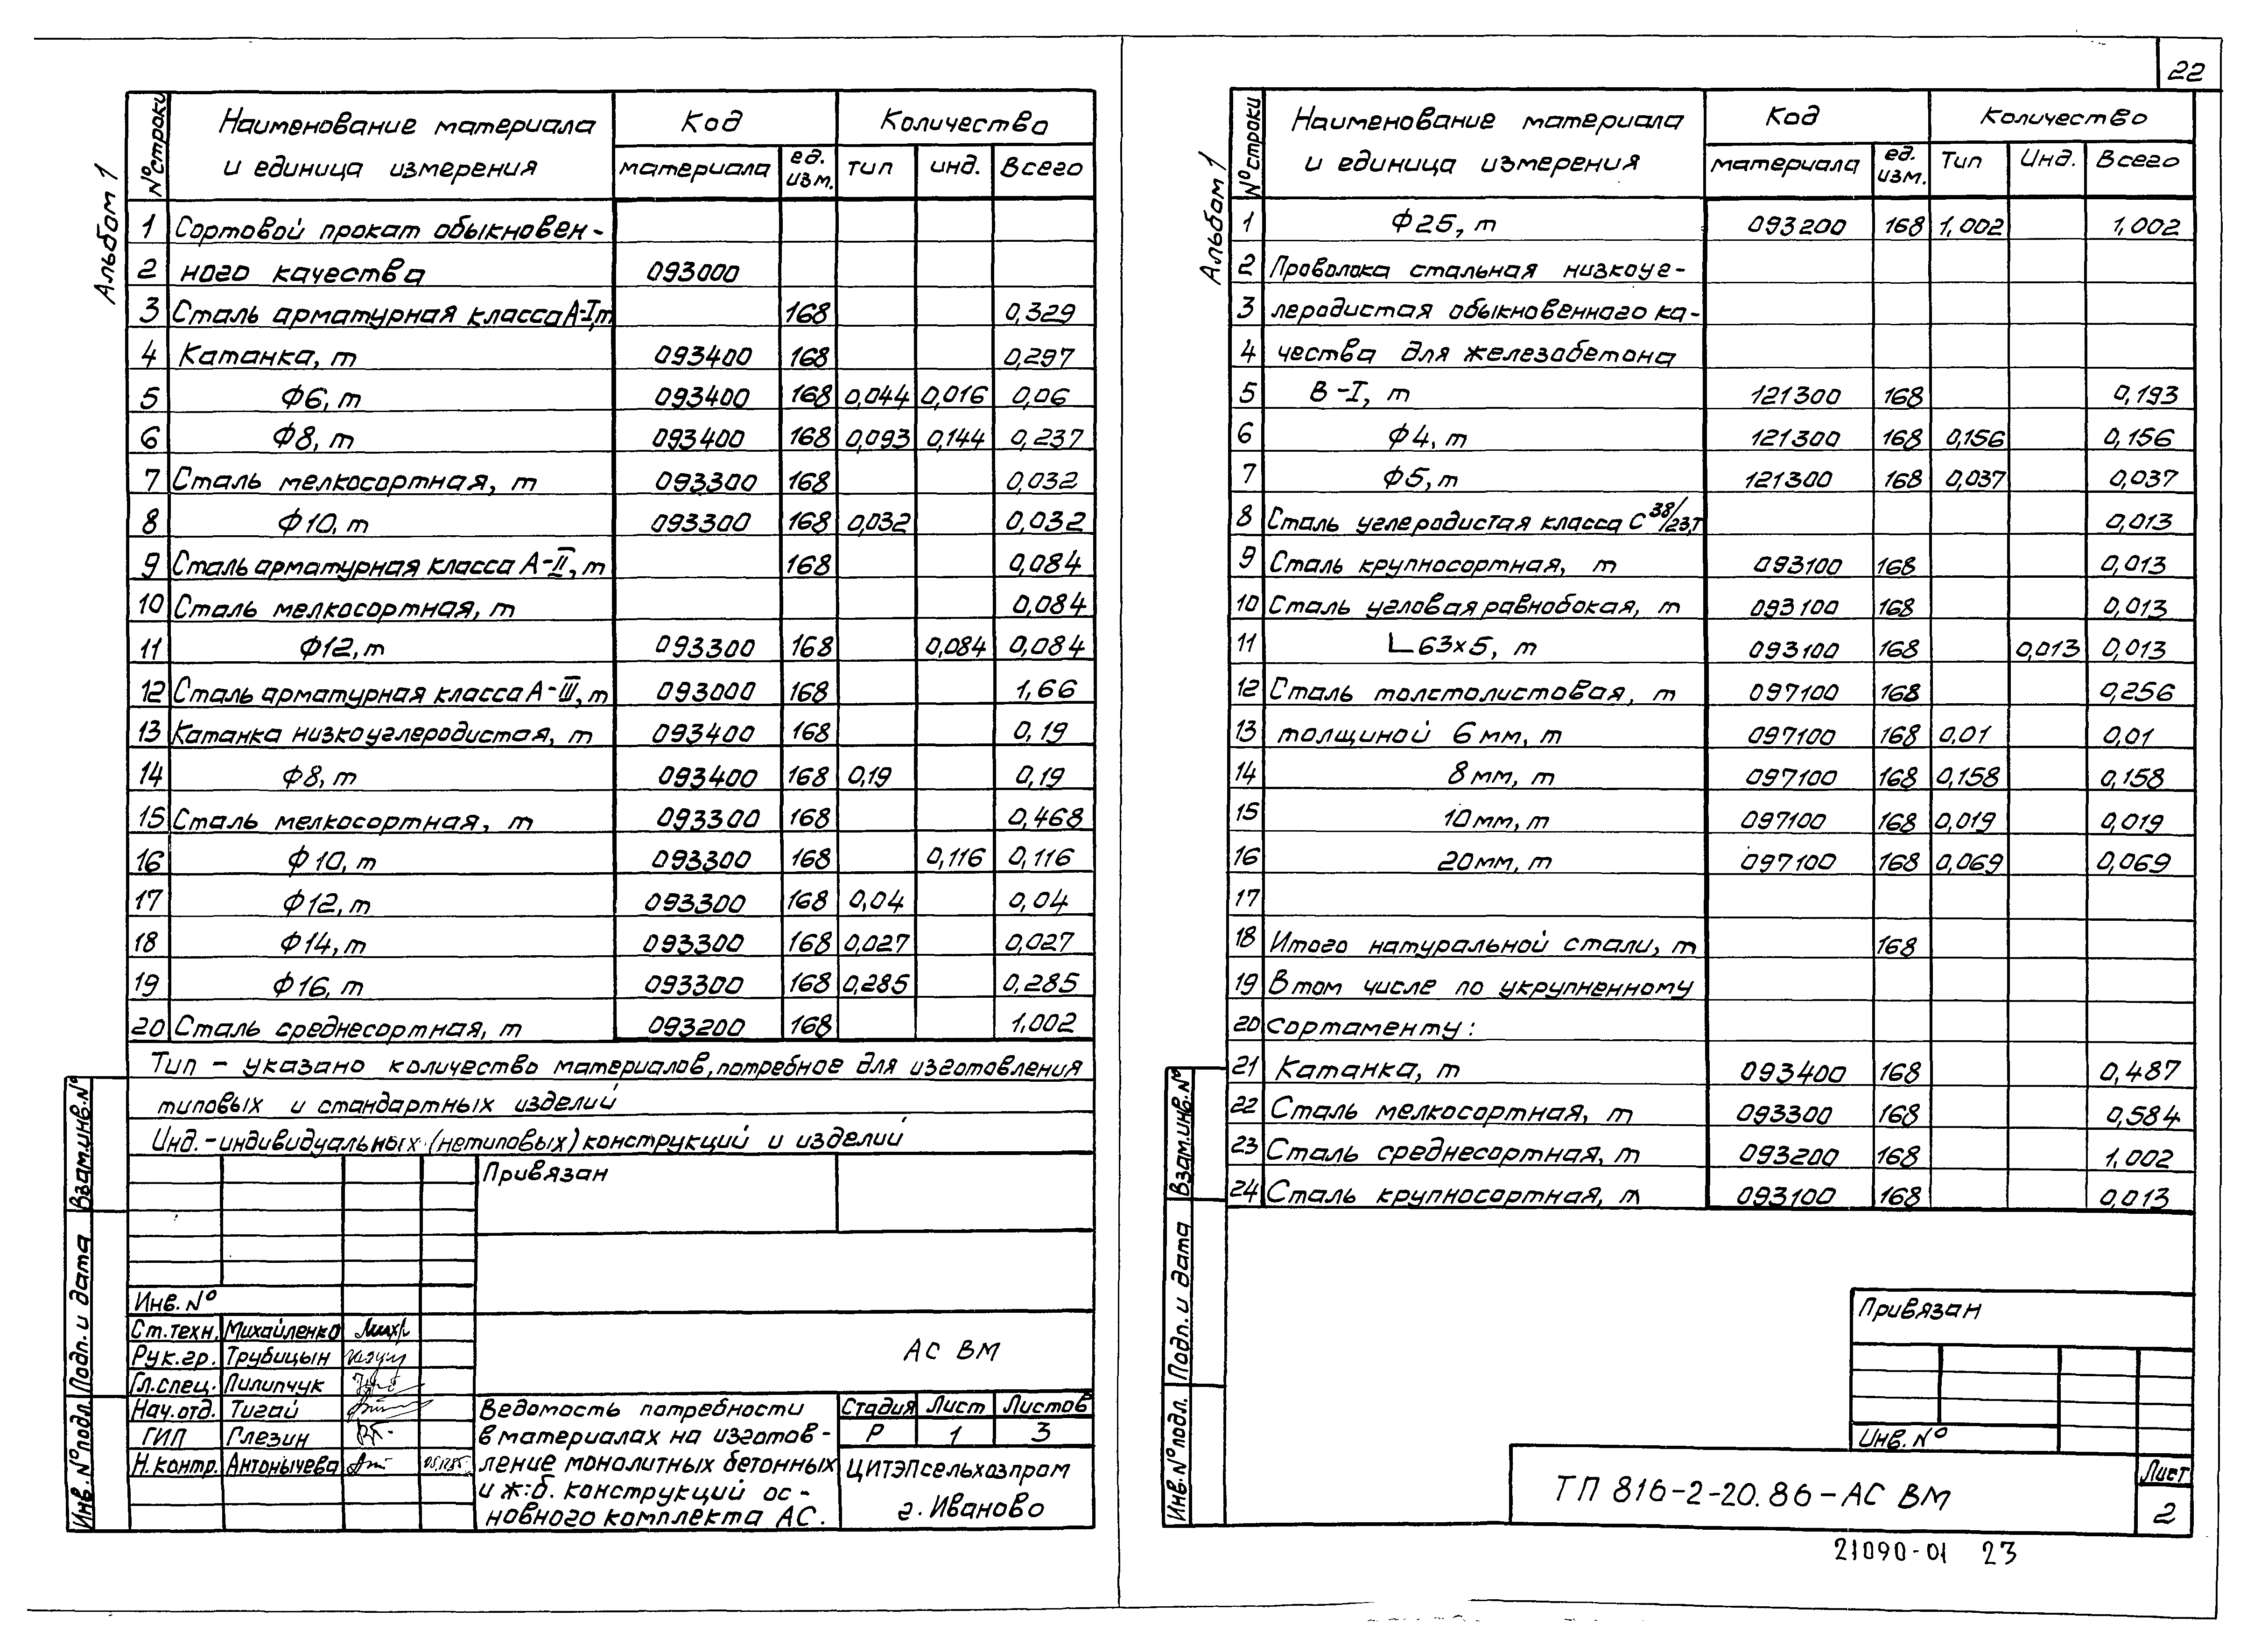 22
Альбом 1
№ строки Наименование материала и единица измерения Код Количество
материала ед. изм. тип инд. Всего
1 Сортовой прокат обыкновен-
2 ного качества 093000
3 Сталь арматурная класса А-I, т 168 0,329
4 Катанка, т 093400 168 0,297
5 Ф6, т 093400 168 0,044 0,016 0,06
6 Ф8, т 093400 168 0,093 0,144 0,237
7 Сталь мелкосортная, т 093300 168 0,032
8 Ф10, т 093300 168 0,032 0,032
9 Сталь арматурная класса А-II, т 168 0,084
10 Сталь мелкосортная, т 0,084
11 Ф12, т 093300 168 0,084 0,084
12 Сталь арматурная класса А-III, т 093000 168 1,66
13 Катанка низкоуглеродистая, т 093400 168 0,19
14 Ф8, т 093400 168 0,19 0,19
15 Сталь мелкосортная, т 093300 168 0,468
16 Ф10, т 093300 168 0,116 0,116
17 Ф12, т 093300 168 0,04 0,04
18 Ф14, т 093300 168 0,027 0,027
19 Ф16, т 093300 168 0,285 0,285
20 Сталь среднесортная, т 093200 168 1,002
Тип – указано количество материалов, потребное для изготовления
типовых и стандартных изделий
Инд. – индивидуальных (нетиповых) конструкций и изделий
Привязан
Инв. №
Ст. техн. Михайленко
Рук. гр. Трубицын
Гл. спец. Пилипчук
Нач. отд. Тигай
ГИП Глезин
Н. контр. Антонычева
АС ВМ
Ведомость потребности
в материалах на изготов-
ление монолитных бетонных
и ж.б. конструкций ос-
новного комплекта АС.
Стадия Лист Листов
Р 1 3
ЦИТЭПсельхозпром
г. Иваново
Взам. инв. №
Подп. и дата
Инв. № подл.
Альбом 1
№ строки Наименование материала и единица измерения Код Количество
материала ед. изм. Тип Инд. Всего
1 Ф25, т 093200 168 1,002 1,002
2 Проволока стальная низкоуг-
3 леродистая обыкновенного ка-
4 чества для железобетона
5 В-I, т 121300 168 0,193
6 Ф4, т 121300 168 0,156 0,156
7 Ф5, т 121300 168 0,037 0,037
8 Сталь углеродистая класса С 38/23, т 0,013
9 Сталь крупносортная, т 093100 168 0,013
10 Сталь угловая равнобокая, т 093100 168 0,013
11 L 63х5, т 093100 168 0,013 0,013
12 Сталь толстолистовая, т 097100 168 0,256
13 толщиной 6 мм, т 097100 168 0,01 0,01
14 8 мм, т 097100 168 0,158 0,158
15 10 мм, т 097100 168 0,019 0,019
16 20 мм, т 097100 168 0,069 0,069
17
18 Итого натуральной стали, т 168
19 В том числе по укрупненному
20 сортаменту:
21 Катанка, т 093400 168 0,487
22 Сталь мелкосортная, т 093300 168 0,584
23 Сталь среднесортная, т 093200 168 1,002
24 Сталь крупносортная, т 093100 168 0,013
Взам. инв. №
Подп. и дата
Инв. № подл.
Привязан
Инв. №
ТП 816-2-20.86-АС ВМ
Лист
2
21090-01 23